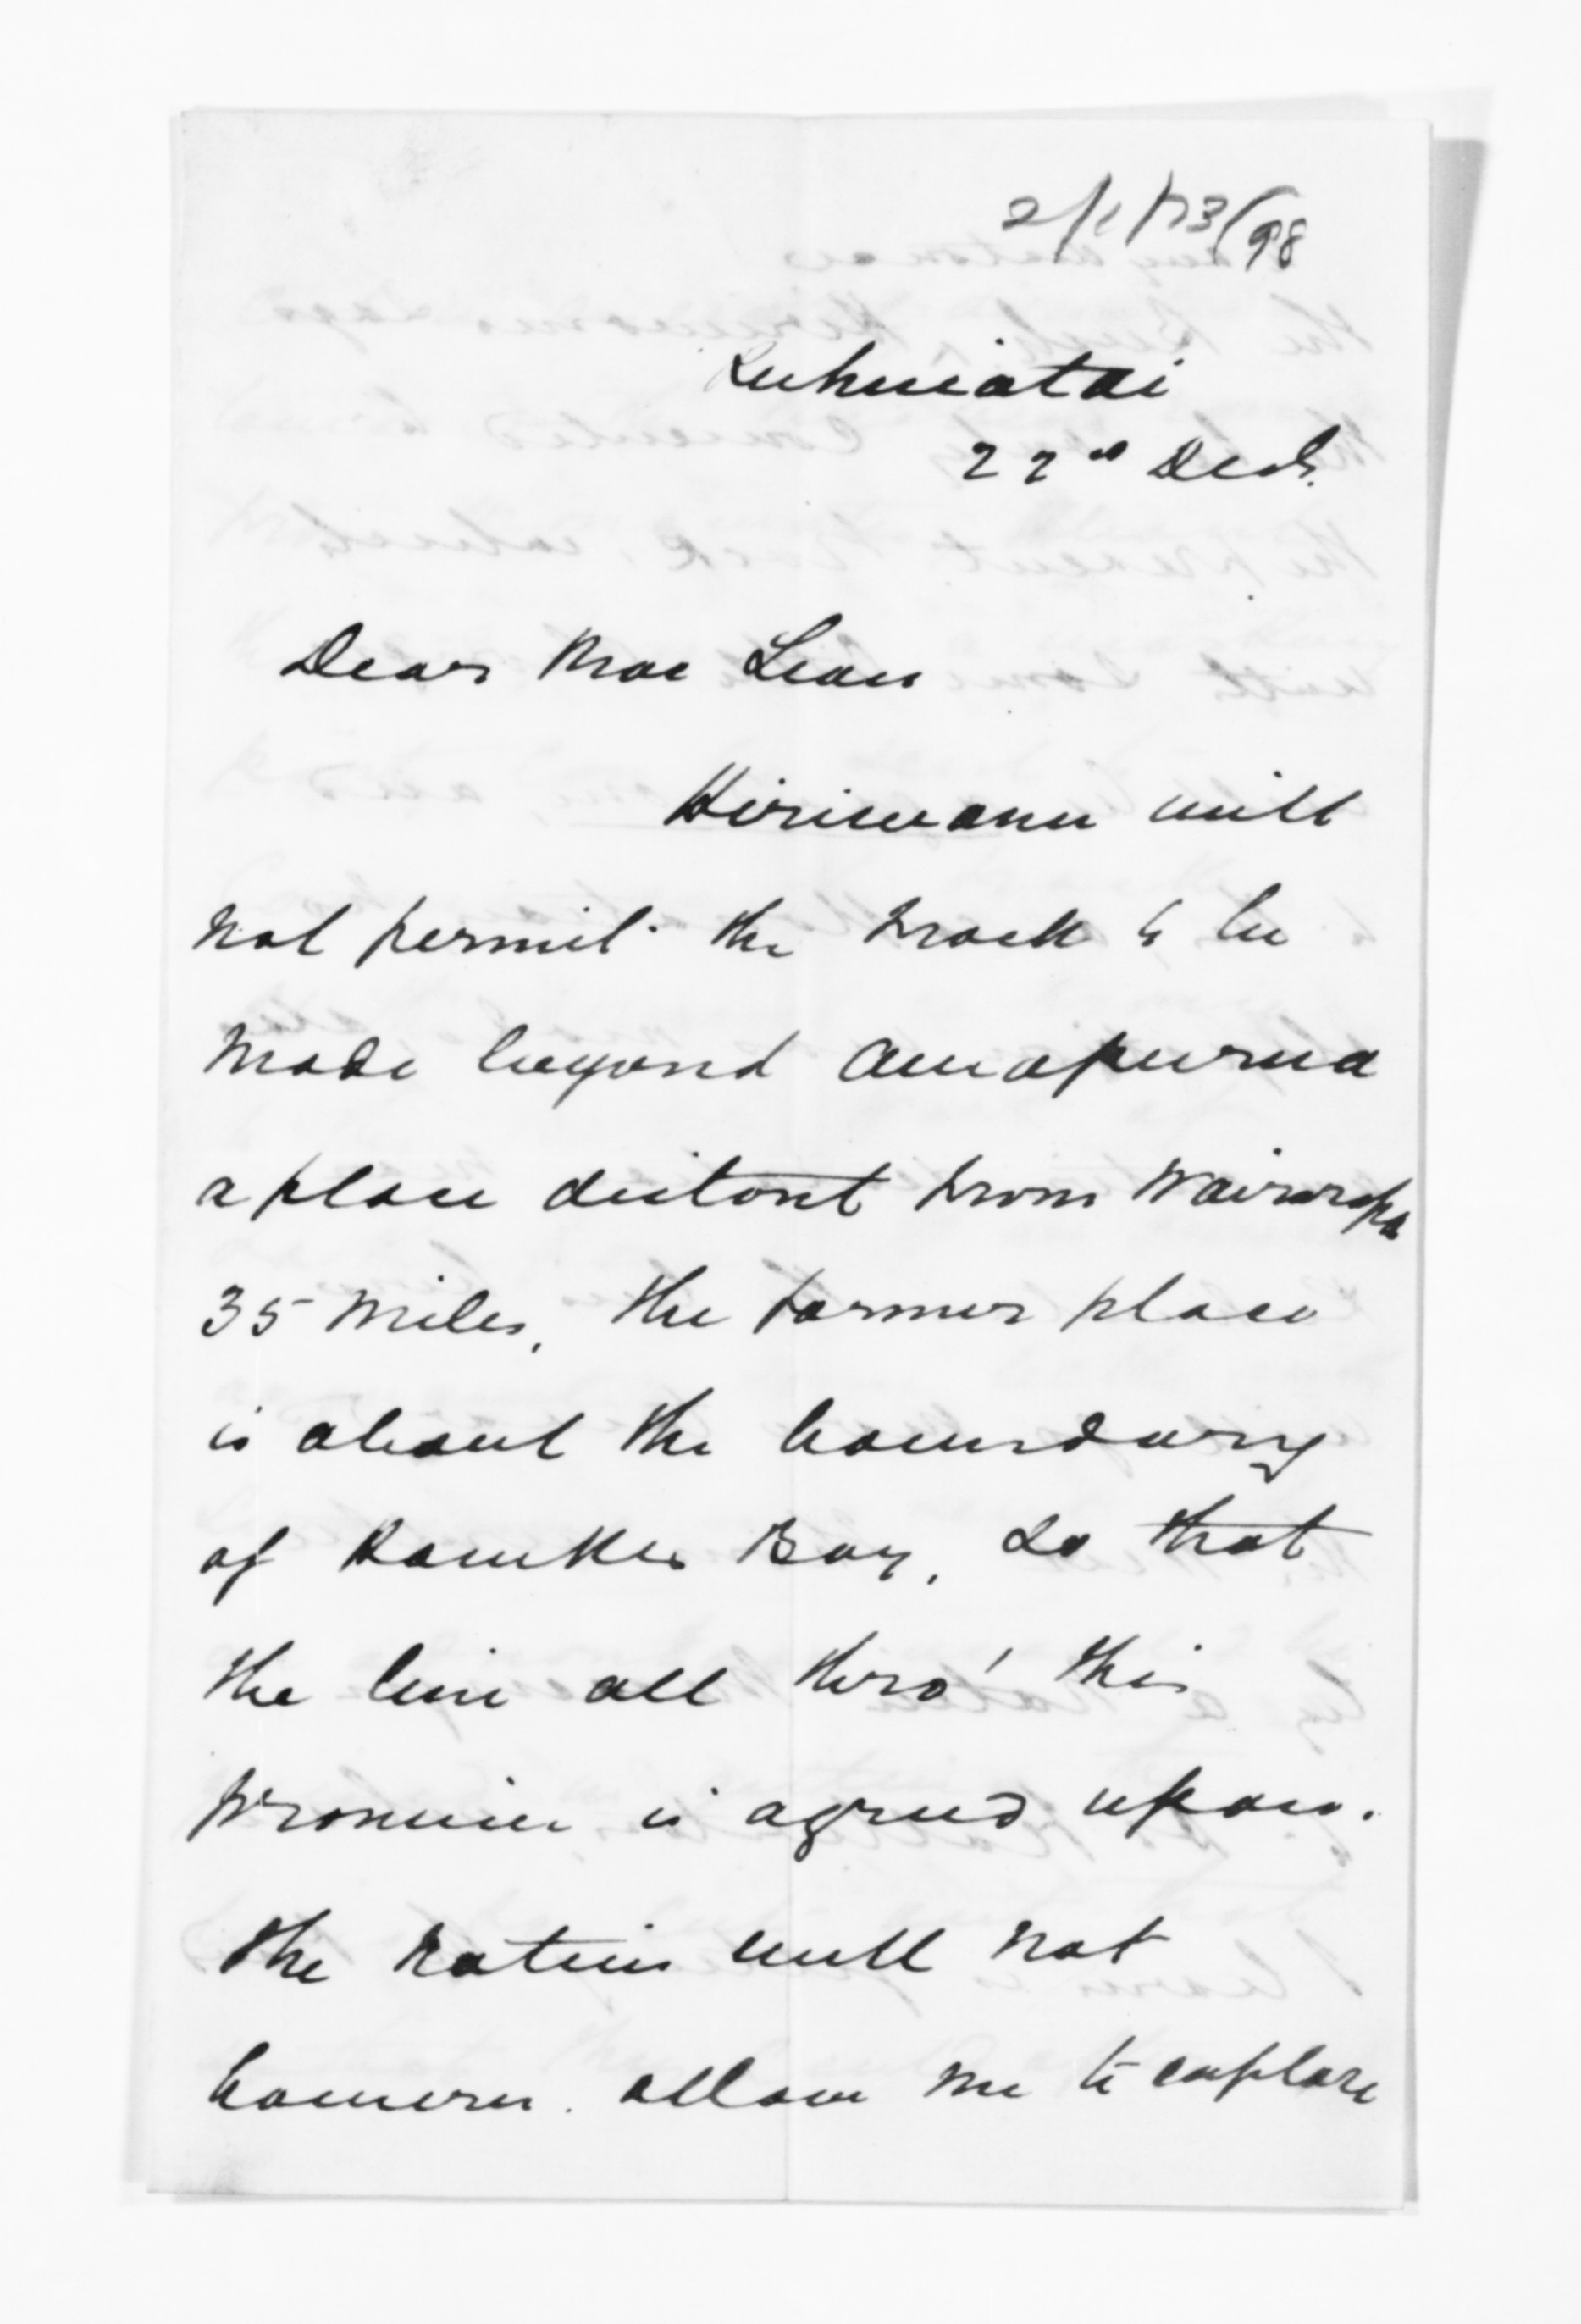 22nd Decr.
Dear Mac Lean
Hiriwanu will
not permit the track to be
made beyond
a place distant from Wairarapa
35 miles, the former place
is about the boundary
of Hawkes Bay, so that
the line all thro' this
province is agreed upon.
the natives will not
however. allow me to explore